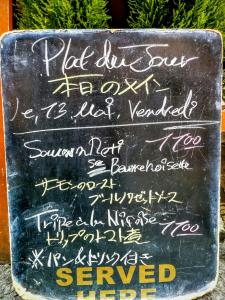 Plat du Jour
本日のメイン
le, 13. Mai, Vendredi
Saumon Rôti 1700
Beurre noisette
サーモンのロースト
ブールノワゼットソース
Tripe à la Niçoise 1700
トリップのトマト煮
※パン&ドリンク付き
SERVED
HERE